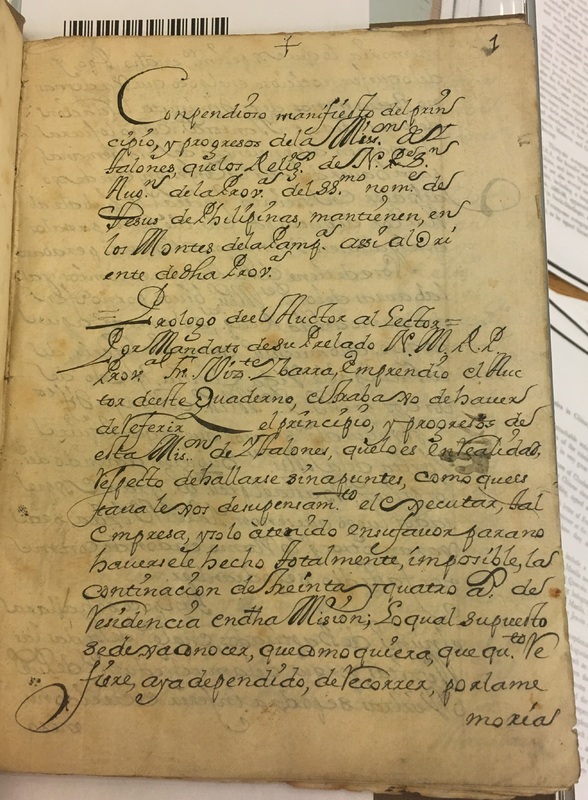 + 1
Conpendioso manifiesto del prin
cipio, y progresos dela Miss.ons de Y
talones, quelos Relig.s de N. P. S.n
Aug.n dela Prov.a del SS.mo nom.e de
Jesus de Philipinas, mantienen, en
los Montes dela Pamp.a assi al Ori
ente de dha Prov.a
= Prologo deel Auctor al Lector =
Por Mandato de su Prelado N. M. R. P.
Prov.al Fr. Viz.te Ybarra, emprendió el Auc
tor deeste Quaderno, el trabaxo de haver
de referir el principio, y progresos de
esta Mis.on de Ytalones, quelo es en realidad,
respecto de hallarse sin apuntes, como que es
tava lexos de su pensam.to el executar, tal
empresa, y solo atenido en su favor para no
haversele hecho totalmente, imposible, la
continacion de treinta y quatro a.s de
residencia en dha Mision; Lo qual supuesto
se dexa conocer, que como quiera, que qu.to Re
fiere, aya dependido, de recorrer, por la me
moria